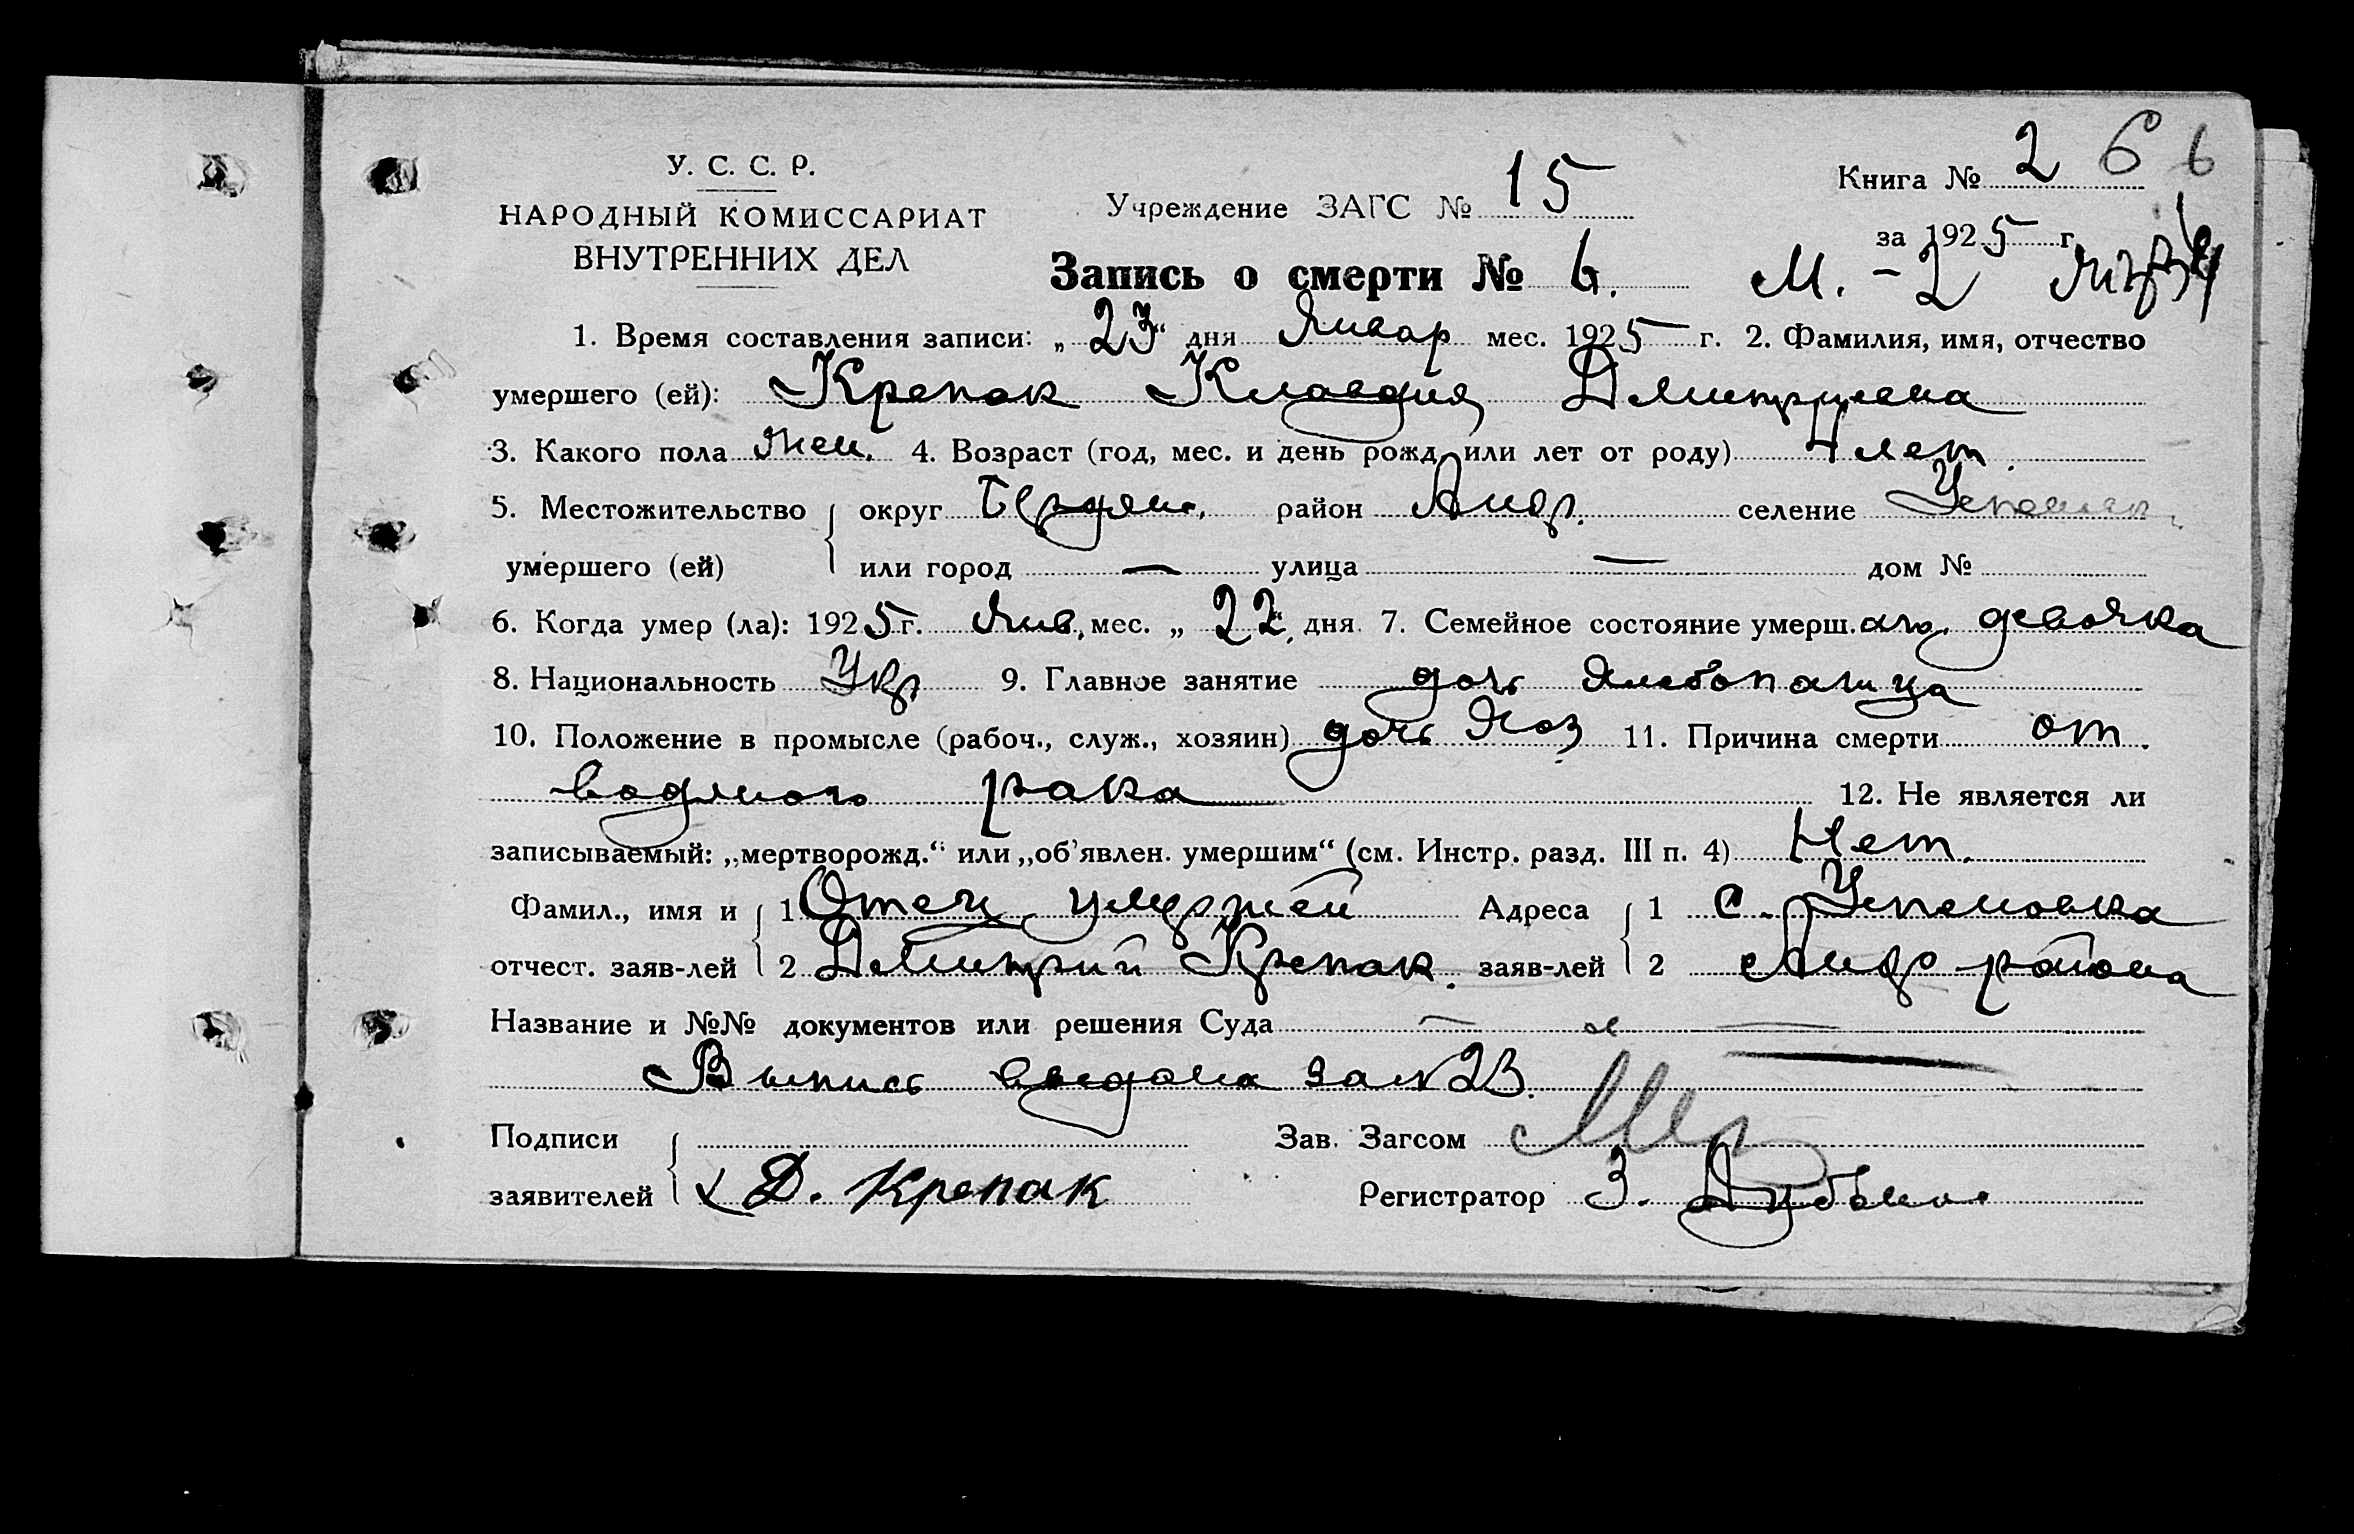 У. С. С. Р.
НАРОДНЫЙ КОМИССАРИАТ
ВНУТРЕННИХ ДЕЛ
Учреждение ЗАГС № 15
Книга № 2 6 6
за 1925 г.
Запись о смерти № 6. М. - 2
1. Время составления записи: „23“ дня Январ мес. 1925 г. 2. Фамилия, имя, отчество
умершего (ей): Крепак Клавдия Дмитриевна
3. Какого пола жен. 4. Возраст (год, мес. и день рожд. или лет от роду) 4 лет.
5. Местожительство округ Бердян. район Андр. селение Успенов
умершего (ей) или город — улица — дом №
6. Когда умер (ла): 1925 г. Янв. мес. „22“ дня 7. Семейное состояние умерш. девочка
8. Национальность Укр 9. Главное занятие дочь хлебопашца
10. Положение в промысле (рабоч., служ., хозяин) дочь хоз 11. Причина смерти от
водяного рака 12. Не является ли
записываемый: „мертворожд.“ или „об’явлен. умершим“ (см. Инстр. разд. III п. 4) Нет.
Фамил., имя и 1 Отец умершей Адреса 1 с. Успеновка
отчест. заяв-лей 2 Дмитрий Крепак. заяв-лей 2 Андр района
Название и №№ документов или решения Суда —
Выпись выдана за № 23.
Подписи Зав. Загсом
заявителей Д. Крепак Регистратор З.